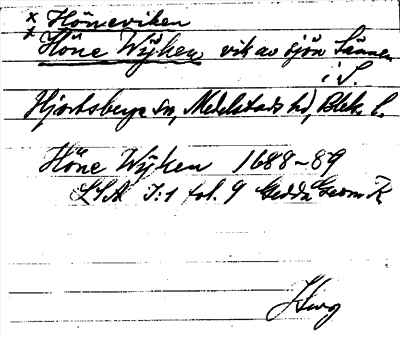 x Höneviken
x Höne Wÿken vik av sjön Sännen
i S.
Hjortsberga sn, Medelstads hd, Blek. l.
Höne Wÿken 1688-89
LSA I:1 fol. 9 Gedda Geom K